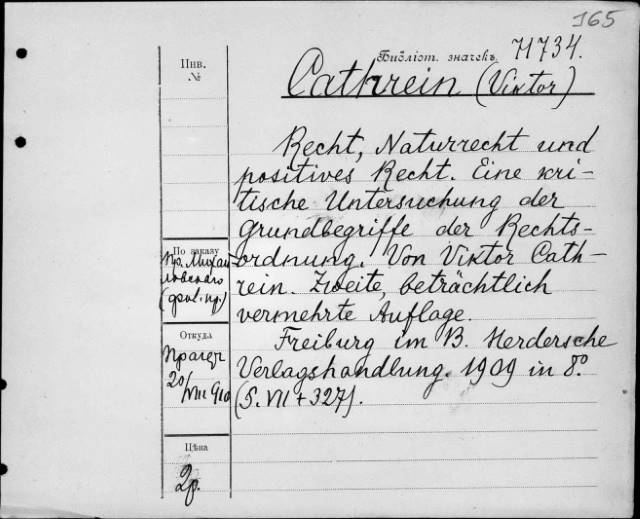 165
Библіот. значекъ 71734.
Cathrein (Viktor)
Инв.
№
Recht, Naturrecht und
positives Recht. Eine kri-
tische Untersuchung der
Grundbegriffe der Rechts-
ordnung. Von Viktor Cath-
rein. Zweite, beträchtlich
vermehrte Auflage.
Freiburg im B. Herdersche
Verlagshandlung. 1909 in 8º.
(S. VII + 327).
По заказу
пр. Михай-
ловскаго
Откуда
20/VIII 910
Цѣна
2р.